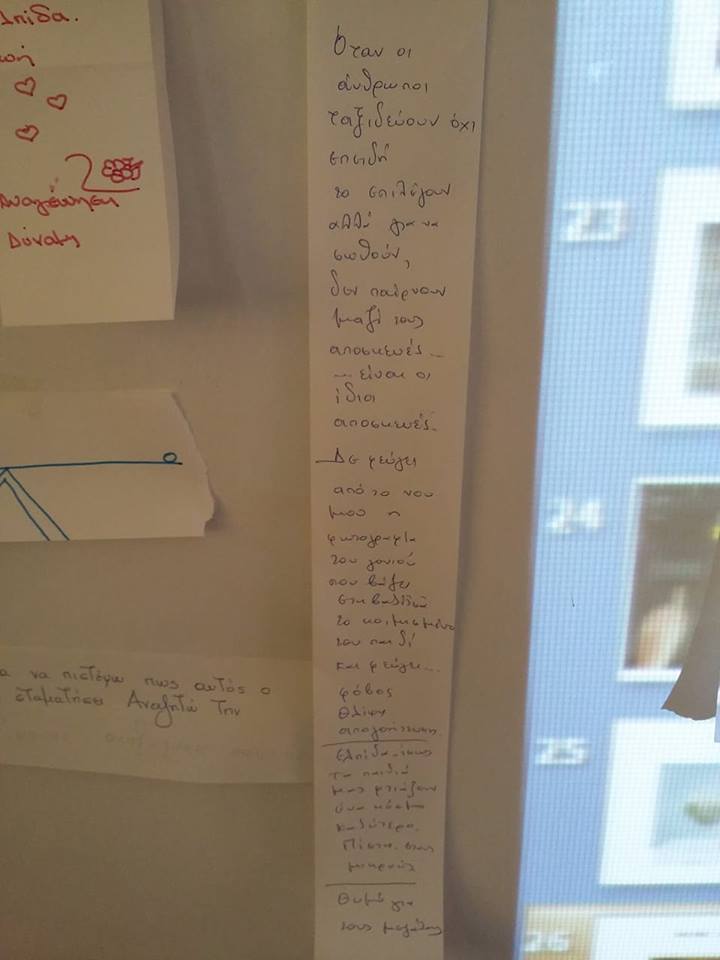 λπίδα.
Αναγέννηση
Δύναμη
Όταν οι
άνθρωποι
ταξιδεύουν όχι
επειδή
το επιλέγουν
αλλά για να
σωθούν,
δεν παίρνουν
μαζί τους
αποσκευές...
... είναι οι
ίδιοι
αποσκευές.
Δε φεύγει
από το νου
μου η
φωτογραφία
του γονιού
που βάζει
στη βαλίτσα
το κοιμισμένο
του παιδί
και φεύγει...
φόβος
θλίψη
απογοήτευση
Ελπίδα. ίσως
τα παιδιά
μας φτιάξουν
ένα κόσμο
καλύτερο.
Πίστη στους
μικρούς
Θυμό για
τους μεγάλους
α να πιστέψω πως αυτός ο
σταματήσει Αναζητώ την
23
24
25
26